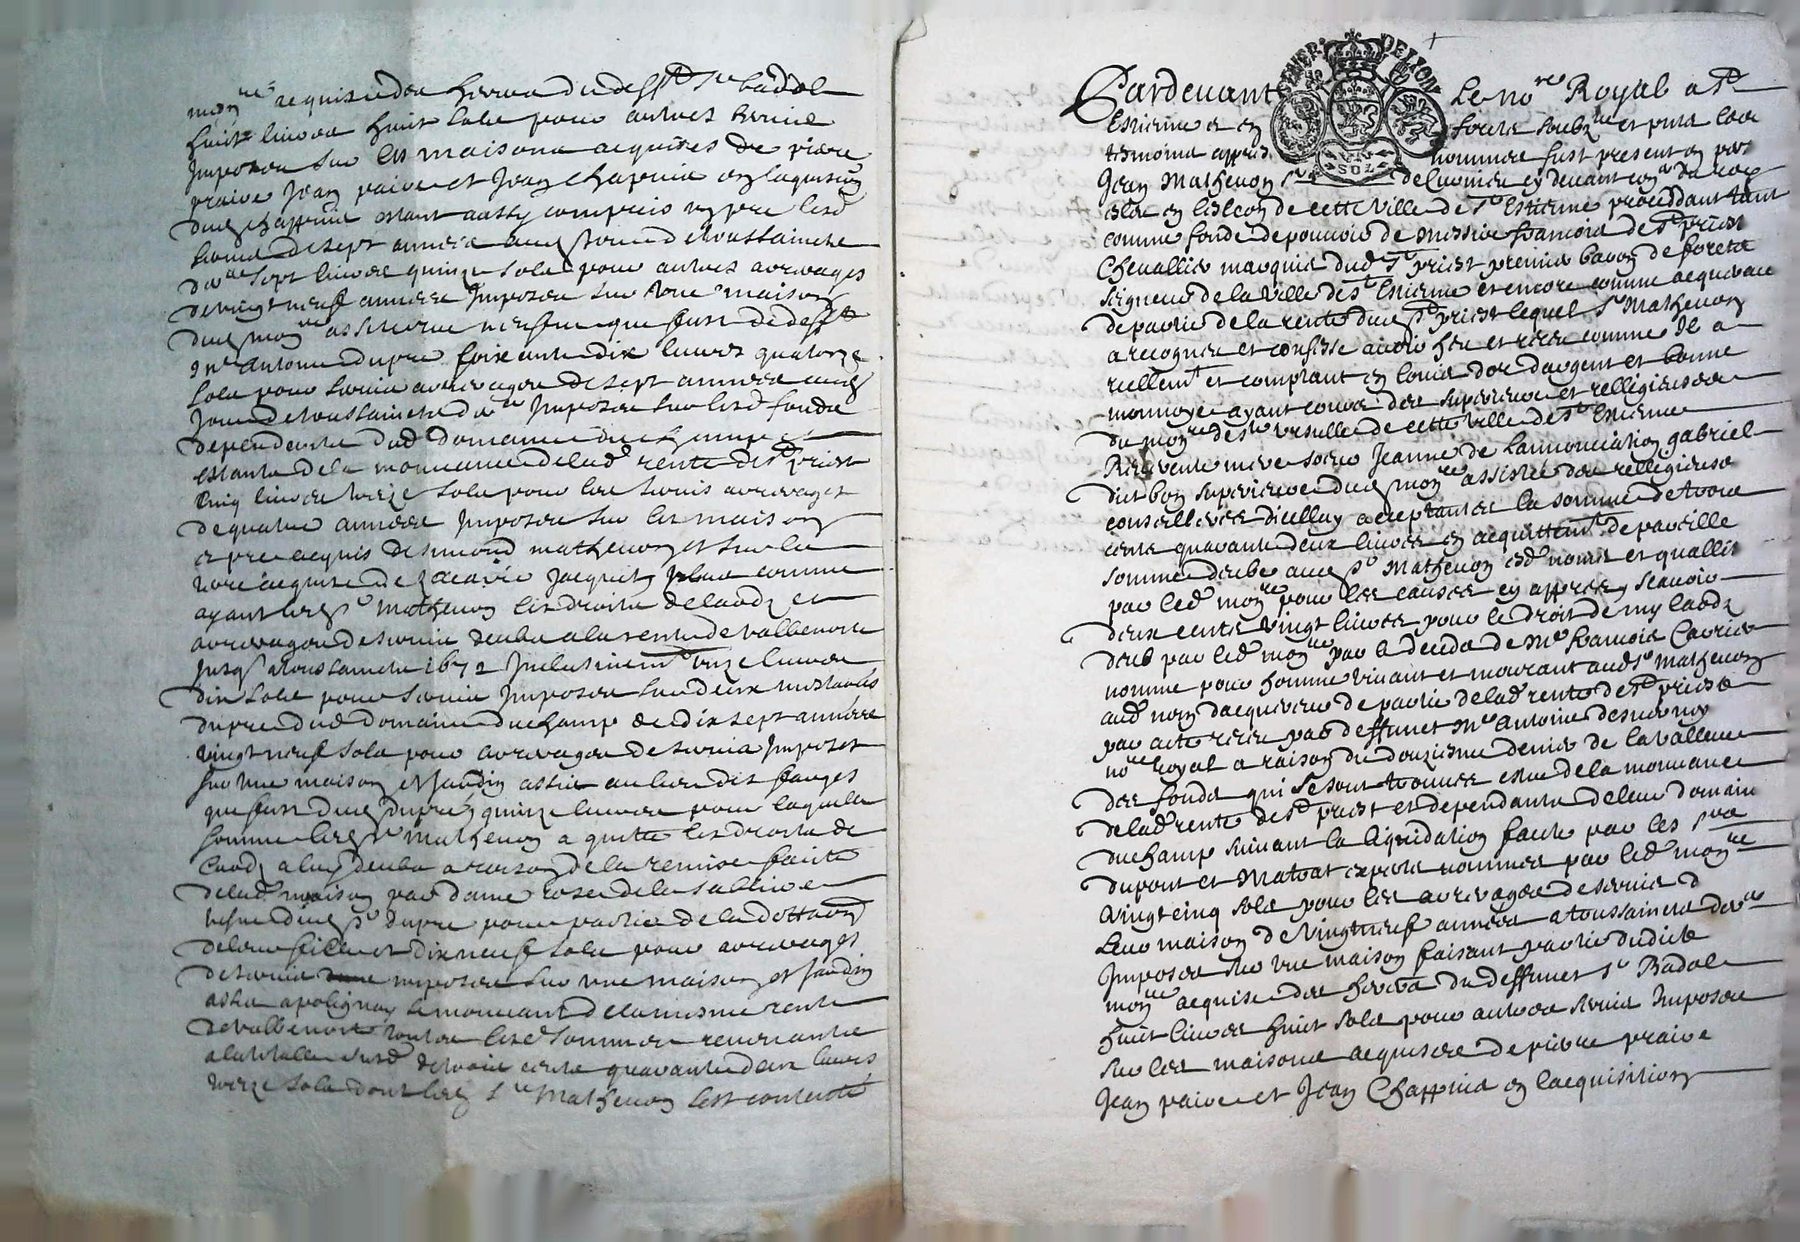 mon.re acquise des hervs du deff.t s.r badol
huict livres huict sols pour autres servis
Imposés sur les maisons acquises de pierre
praire Jean paire et Jean Chapuis en laquisition
dud. Chappuis estant aussy compris un pré lesd.
servis de sept années aud. jour de toussaincts
d.re sept livres quinze sols pour autres arrerages
de vingt neuf années Imposés sur une maison
dud. mon.re assise rue neufve que fust de deff.t
M.e Antoine dupré soixante dix livres quatorze
sols pour servis arrerages de sept années aud.
Jour de toussaincts d.re Imposés sur lesd. fonds
dependants dud. domaine du Champ et
estants de la mouvance de lad. rente de S.t priest
Cinq livres treize sols pour les servis arrerages
de quatre années Imposés sur les maison
et pre acquis de simond mathevon et sur la
terre acquise de zacarie Jacquet plus comme
ayant led. s.r Mathevon les droits de laods et
arrerages de servis deubs a la rente de Valbenoite
Jusq. a toussaincts 1672 Inclusivem.t onze livres
dix sols pour servis Imposés sur deux
du pre dud. domaine du Champ de dix sept années
vingt neuf sols pour arrerages de servis Imposés
sur une maison et Jardin assis au lieu des fauges
que fust dud. dupré quinze livres pour laquelle
somme led. s.r Mathevon a quitté les droits de
Laods a luy deubs a raison de la remise faicte
de lad. maison par dame rose de la
vefve dud. s.r dupré pour partie de la dotta.on
de leur fille et dix neuf sols pour arrerages
de servis imposés sur une maison et Jardin
assis a polignay se mouvant de la mesme rente
de Valbenoite toutes lesd. sommes revenants
a la totalle susd. de trois cents quarante deux livres
treize sols dont led. s.r Mathevon s'est contenté
Pardevant Le no.re Royal a S.t
Estienne et en forests soubz.né et presents les
tesmoins appres nommés fust present en pers.
Jean Mathevon s.r de Curnieu cy devant con.er du roy
eslu en l'eslection de cette ville de S.t Estienne procedant tant
comme fondé de pouvoir de messire francois de S.t priest
Chevallier marquis dud. S.t priest premier baron de forets
seigneur de la ville de S.t Estienne et encore comme acquereur
de partie de la rente dud. S.t priest lequel s.r Mathevon
a recogneu et confessé avoir heu et receu comme Il a
reellem.t et comptant en louis d'or d'argent et bonne
monnoye ayant cours des superieure et relligieuses
du mon.re de S.te Ursulle de cette ville de S.t Estienne
Reverente mere soeur Jeanne de Lannonciation gabriel
dict bon superieure dud. mon.re assistée des relligieuses
conseilleres d'icelluy acceptantes la somme de trois
cents quarante deux livres en acquittem.t de pareille
somme deube aud. s.r Mathevon esd. noms et quallités
par led. mon.re pour les causes cy appres scavoir
deux cents vingt livres pour le droit de my laods
deub par led. mon.re par le deceds de M.e francois Cavrier
nommé pour homme vivant et mourant aud. s.r Mathevon
aud. nom d'acquereur de partie de lad. rente de S.t priest
par acte receu par deffunct M.e Antoine desverney
no.re Royal a raison du douziesme denier de la valleur
des fonds qui se sont trouvés estre de la mouvance
de lad. rente de S.t priest et dependants de leur domaine
du champ suivant la liquidation faicte par les s.rs
dupont et Matrat experts nommés par led. mon.re
Vingt cinq sols pour les arrerages de servis
Leur maison de vingt neuf années a toussaincts d.re
Imposés sur une maison faisant partie dudict
mon.re acquise des hervs du deffunct s.r Badol
huict livres huict sols pour autres servis Imposés
sur les maisons acquises de pierre praire
Jean paire et Jean Chappuis en lacquisition
GENER. DE LYON
SOLZ